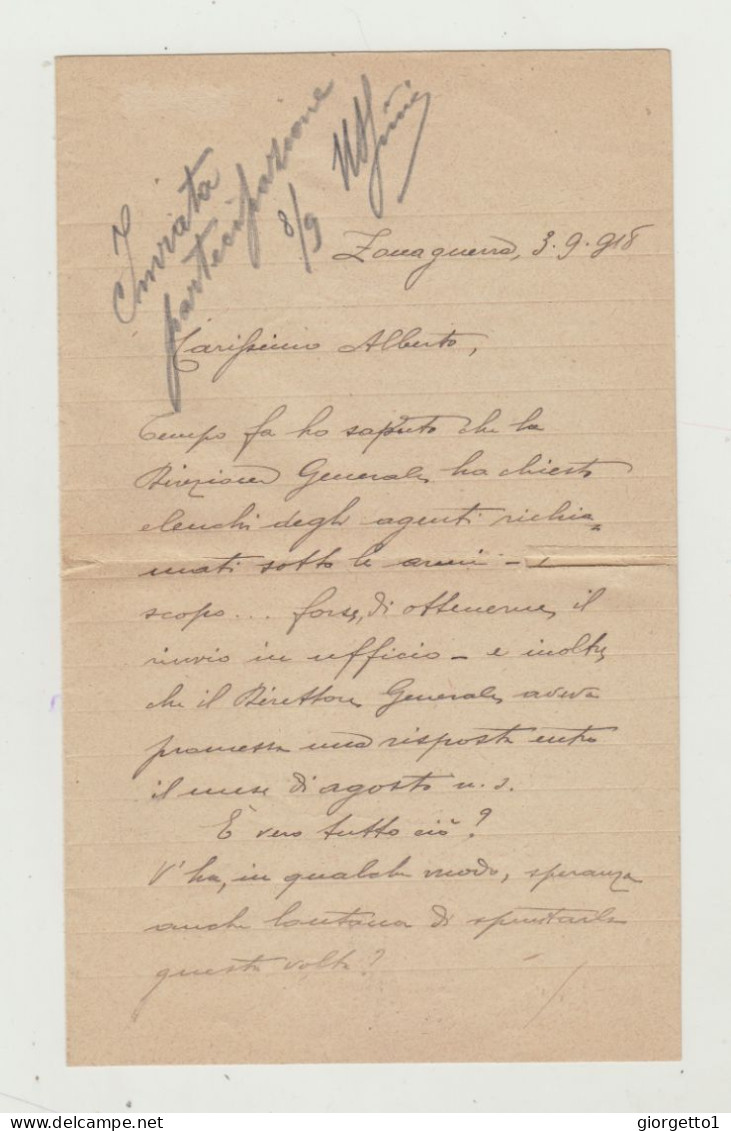 Inviata
partecipazione
8/9
Zona guerra, 3.9.918
Carissimo Alberto,
Tempo fa ho saputo che la
Direzione Generale ha chiesto
elenchi degli agenti richia-
mati sotto le armi - a
scopo... forse, di ottenerne il
rinvio in ufficio - e inoltre
che il Direttore Generale aveva
promessa una risposta entro
il mese di agosto u.s.
È vero tutto ciò?
V'ha, in qualche modo, speranza
anche lontana di spuntarla
questa volta?
delcampe.net
giorgetto1